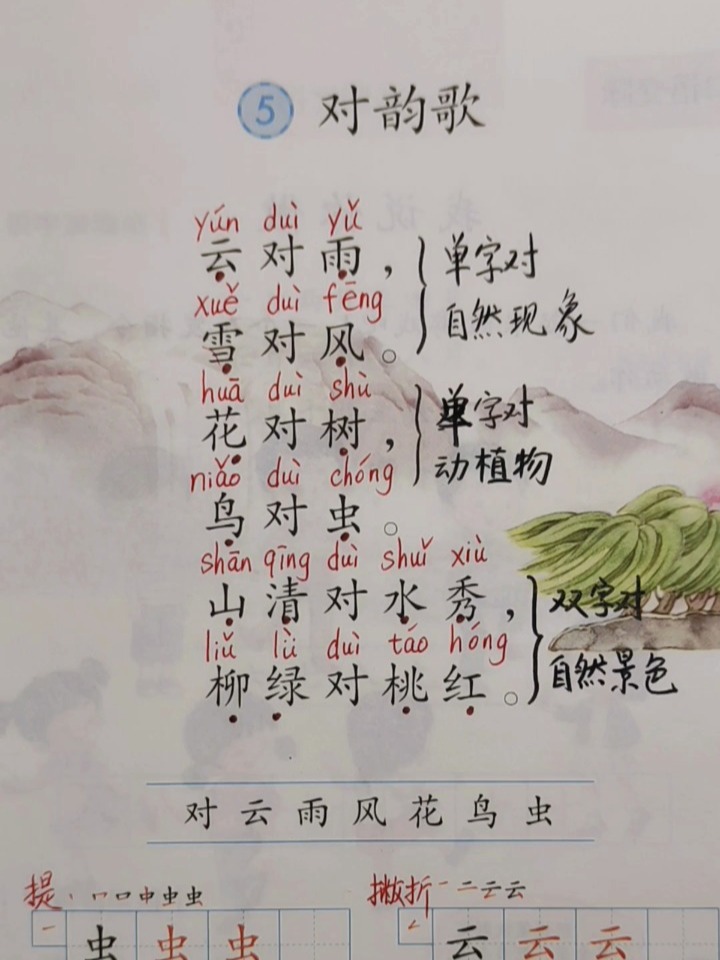 5 对韵歌
yún duì yǔ
云对雨， 单字对
xuě duì fēng
雪对风。 自然现象
huā duì shù
花对树， 单字对
niǎo duì chóng
鸟对虫。 动植物
shān qīng duì shuǐ xiù
山清对水秀， 双字对
liǔ lǜ duì táo hóng
柳绿对桃红。 自然景色
对云雨风花鸟虫
提 丶 口 口 中 虫 虫 撇折 一 二 云 云
虫 虫 虫 云 云 云